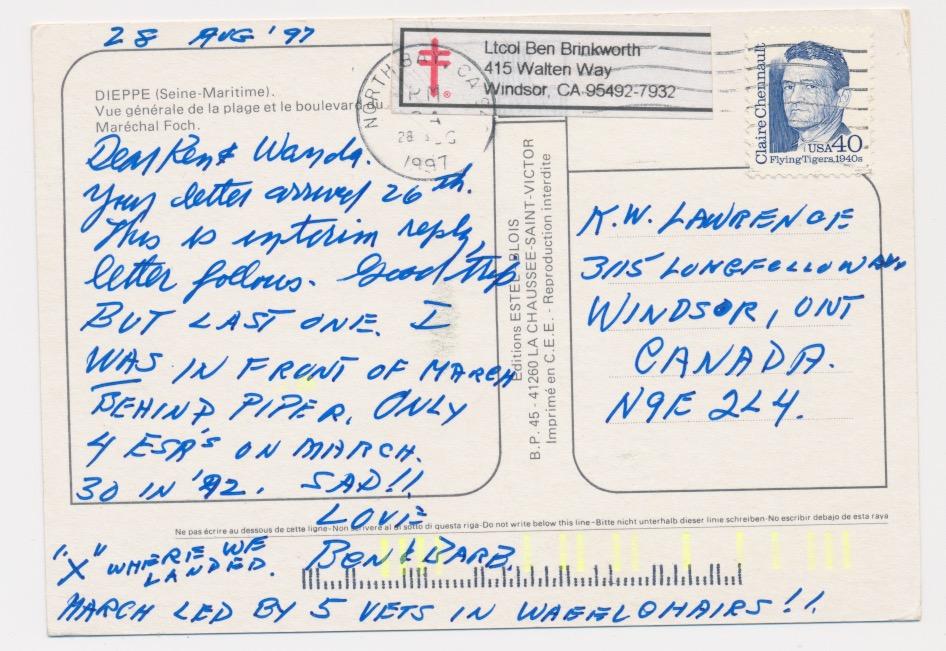 28 AUG '97
DIEPPE (Seine-Maritime).
Vue générale de la plage et le boulevard du
Maréchal Foch.
Dear Ken & Wanda.
Your letter arrived 26th.
This is interim reply,
letter follows. Good trip
BUT LAST ONE. I
WAS IN FRONT OF MARCH
BEHIND PIPER. ONLY
4 ESR'S ON MARCH.
30 IN '92. SAD!!
LOVE
BEN & BARB.
"X" WHERE WE
LANDED.
MARCH LED BY 5 VETS IN WHEELCHAIRS!!
NORTH BAY, CA
PM
28 AUG
1997
Ltcol Ben Brinkworth
415 Walten Way
Windsor, CA 95492-7932
Claire Chennault
USA 40
Flying Tigers, 1940s
Editions ESTEL-BLOIS
B.P. 45 - 41260 LA CHAUSSEE-SAINT-VICTOR
Imprimé en C.E.E. - Reproduction interdite
K.W. LAWRENCE
3115 LONGFELLOW AVE
WINDSOR, ONT
CANADA.
N9E 2L4.
Ne pas écrire au dessous de cette ligne-Non scrivere al di sotto di questa riga-Do not write below this line-Bitte nicht unterhalb dieser linie schreiben-No escribir debajo de esta raya